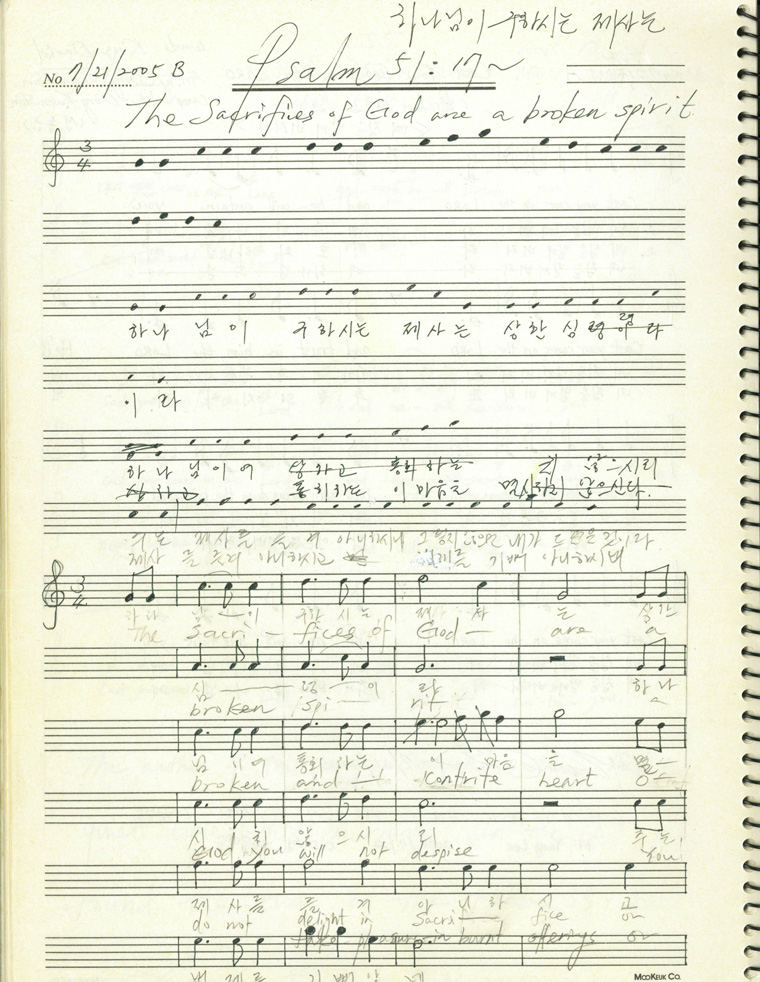 하나님이 구하시는 제사는
No 7/21/2005 B Psalm 51:17~
The Sacrifies of God are a broken spirit
3 4
하나 님이 구하시는 제사는 상한 심령이라
이 라
하나님이여 상하고 통회하는 치 않으시리
상하고 통회하는 이 마음을 멸시하지 않으신다.
주는 제사를 즐겨 아니하시나 그렇지 않으면 내가 드렸을 것이라
제사를 즐겨 아니하시고 번제를 기뻐 아니하시며
3 4
하나 님이 구하시는 제사는 상한
The Sacri-fices of God are a
심 령 이 라 하나
broken spi rit a
님이여 통회하는 이 마음을 멸
broken and contrite heart O
시 치 않 으시 리 주는
God you will not despise You
제사를 즐겨 아니하시고
do not delight in Sacrifice or
take pleasure in burnt offerings or
번제를 기뻐않네
MOOKEUK CO.